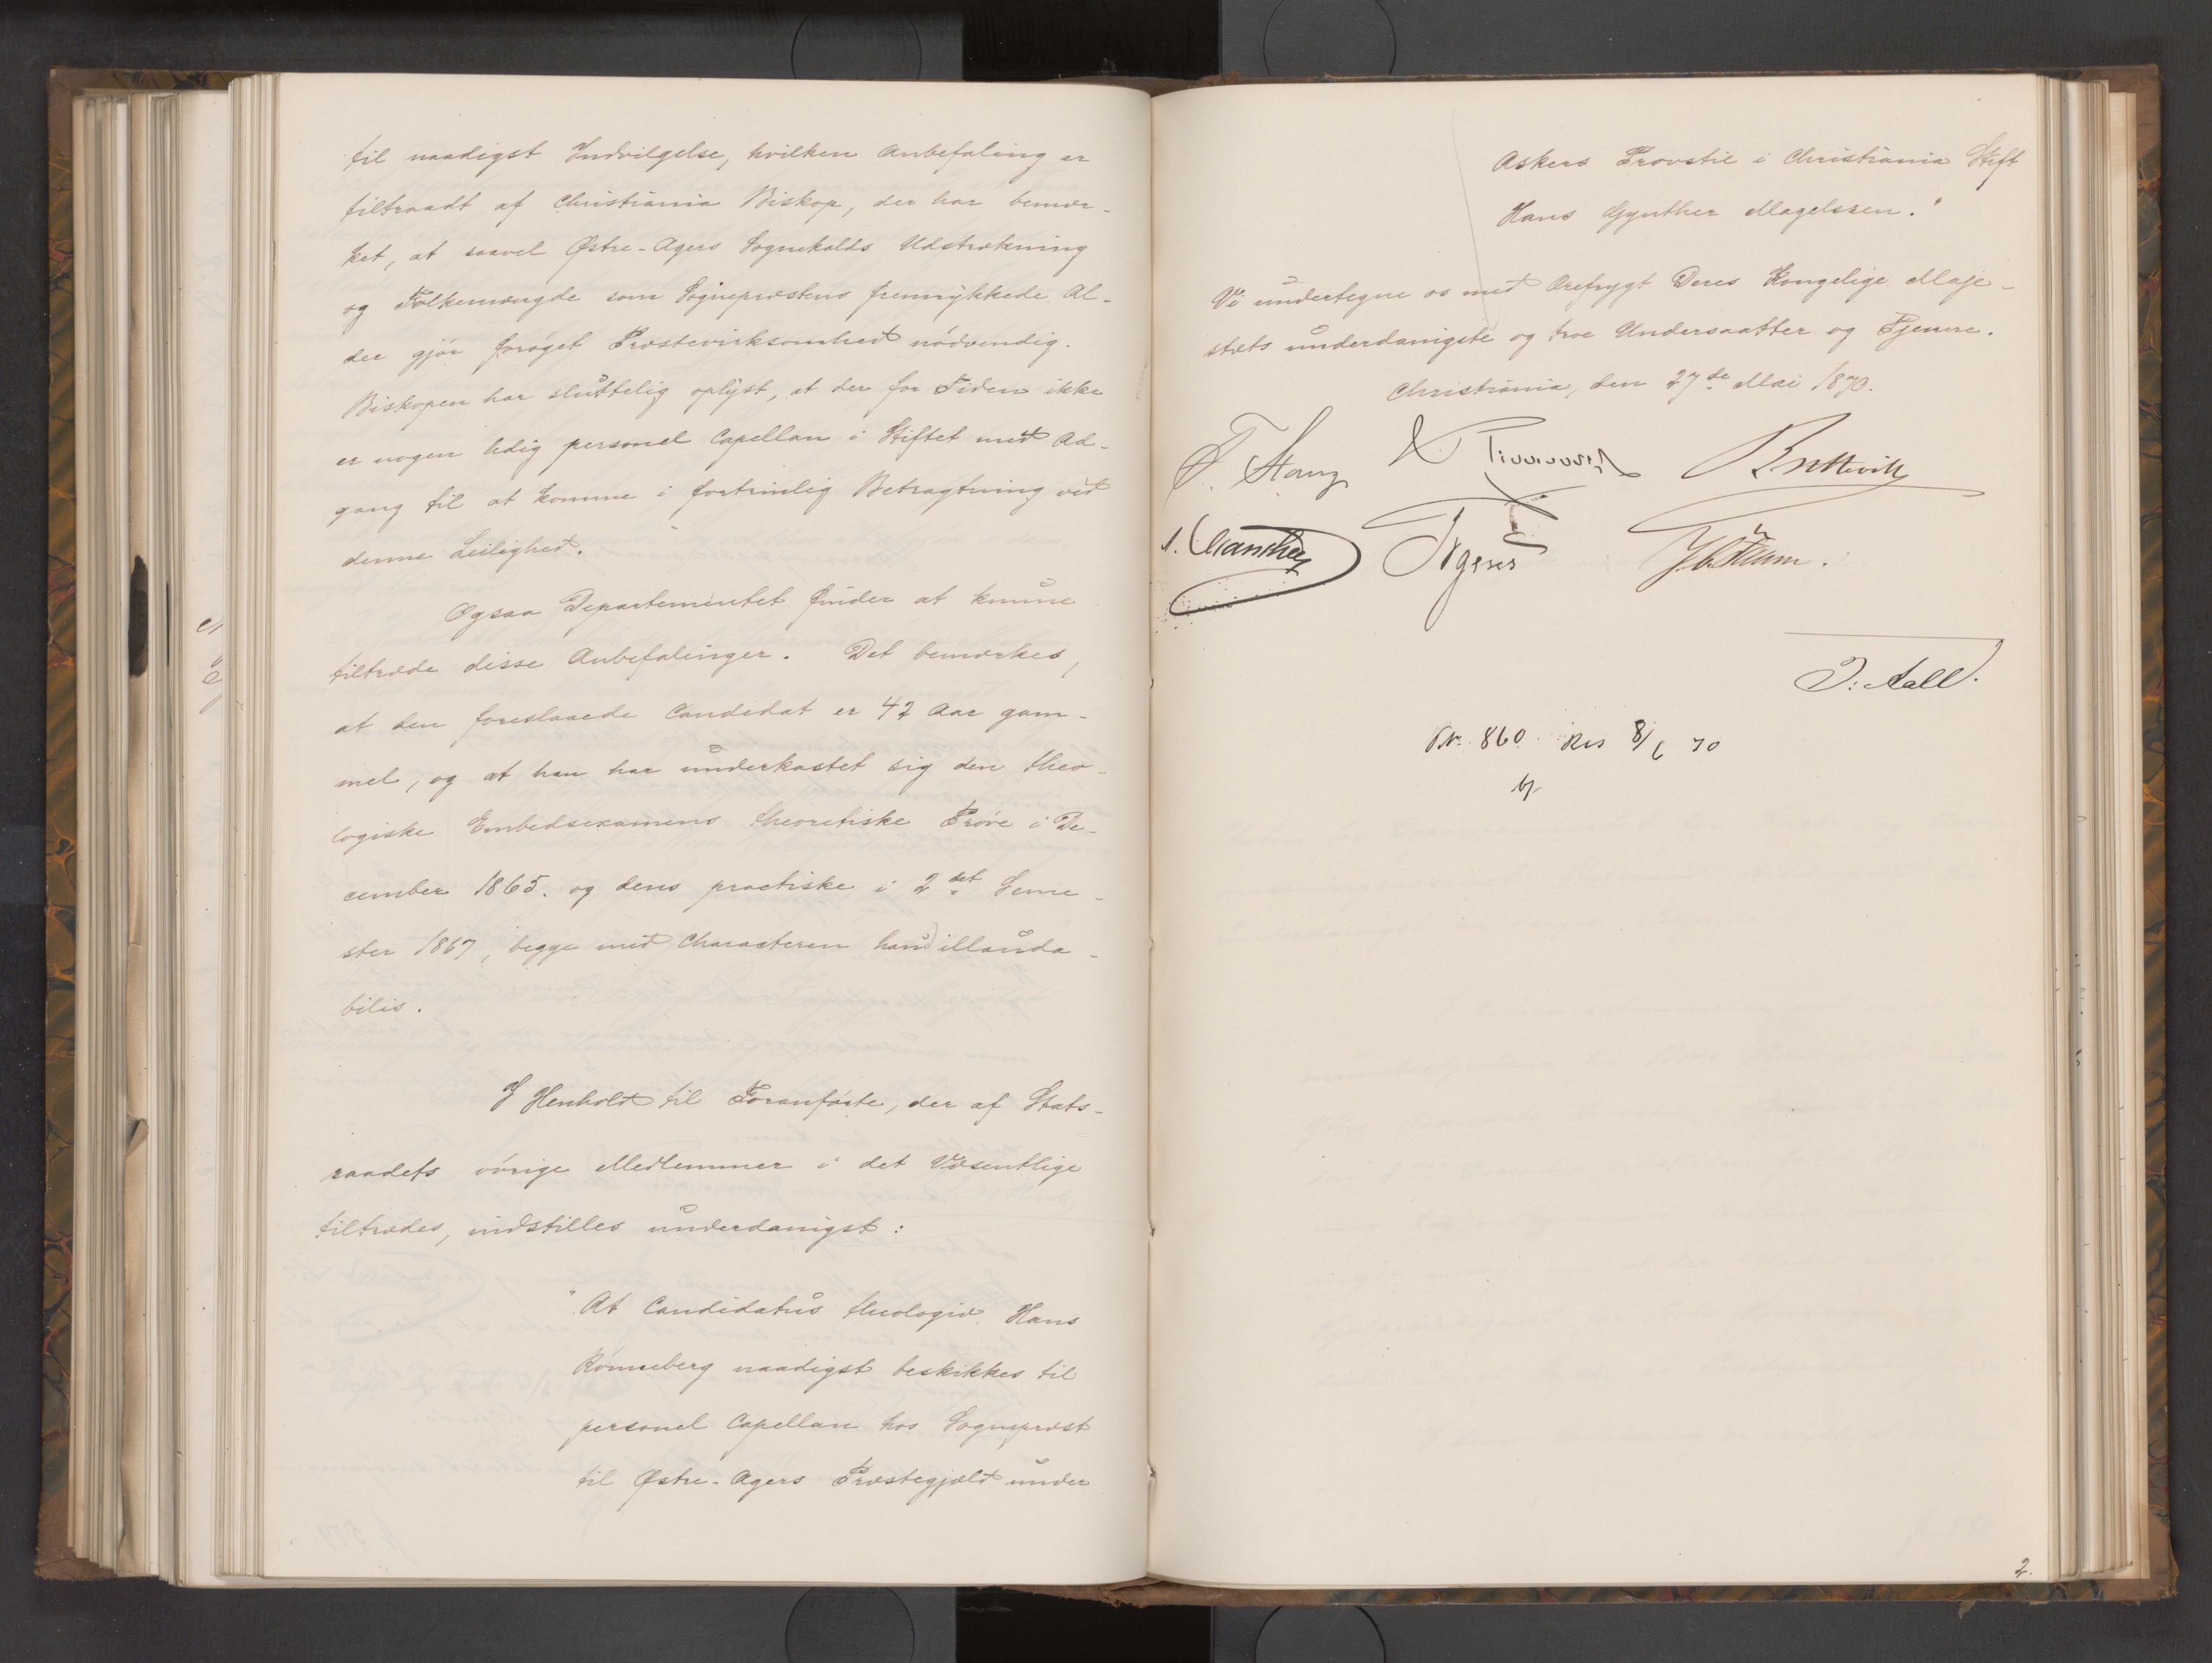 til naadigst Indvilgelse, hvilken Anbefaling er
tiltraadt af Christiania Biskop, der har bemær-
ket, at saavel Østre-Agers Sognekalds Udstrækning
og Folkemængde som Sognepræstens fremrykkede Al-
der gjør forøget Præstevirksomhed nødvendig.
Biskopen har sluttelig oplyst, at der for Tiden ikke
er nogen ledig personel Capellan i Stiftet med Ad-
gang til at komme i fortrinlig Betragtning ved
denne Leilighed.
Ogsaa Departementet finder at kunne
tiltræde disse Anbefalinger. Det bemærkes,
at den foreslaaede Candidat er 42 Aar gam-
mel, og at han har underkastet sig den theo-
logiske Embedsexamens theoretiske Prøve i De-
cember 1865. og dens practiske i 2det Seme-
ster 1867, begge med Characteren haud illauda-
bilis.
I Henhold til Foranførte, der af Stats-
raadets øvrige Medlemmer i det Væsentlige
tiltrædes, indstilles underdanigst:
"At Candidatus theologiæ Hans
Rønneberg naadigst beskikkes til
personel Capellan hos Sognepræst
til Østre-Agers Præstegjæld under
Askers Provstie i Christiania Stift
Hans Gynther Magelssen."
Vi undertegne os med Ærefrygt Deres Kongelige Maje-
stæts underdanigste og troe Undersaatter og Tjenere.
Christiania, den 27de Mai 1870.
F. Stang
Bretteville
Irgens
J: Aall.
PNr. 860 Res 8/6 70
2.